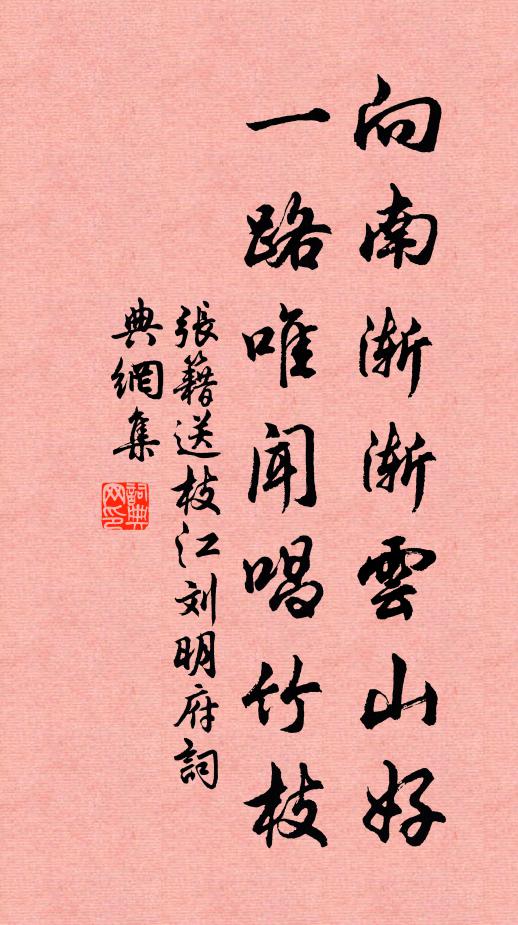 向南渐渐雲山好
一路唯闻唱竹枝
張籍送枝江刘明府詞
典網集
詞典
网印